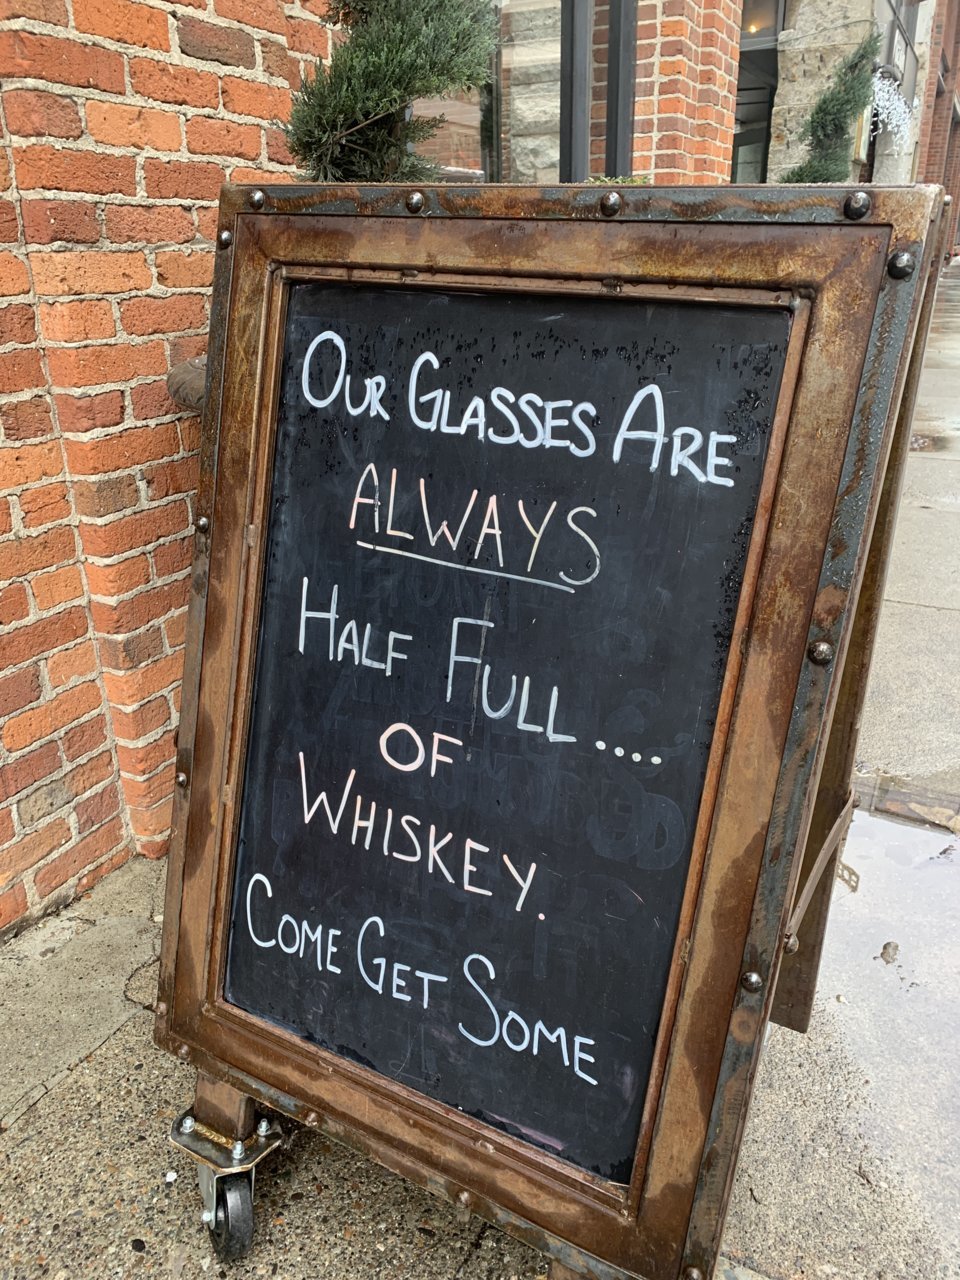 Our Glasses Are
ALWAYS
Half Full.....
OF
WHISKEY.
Come Get Some